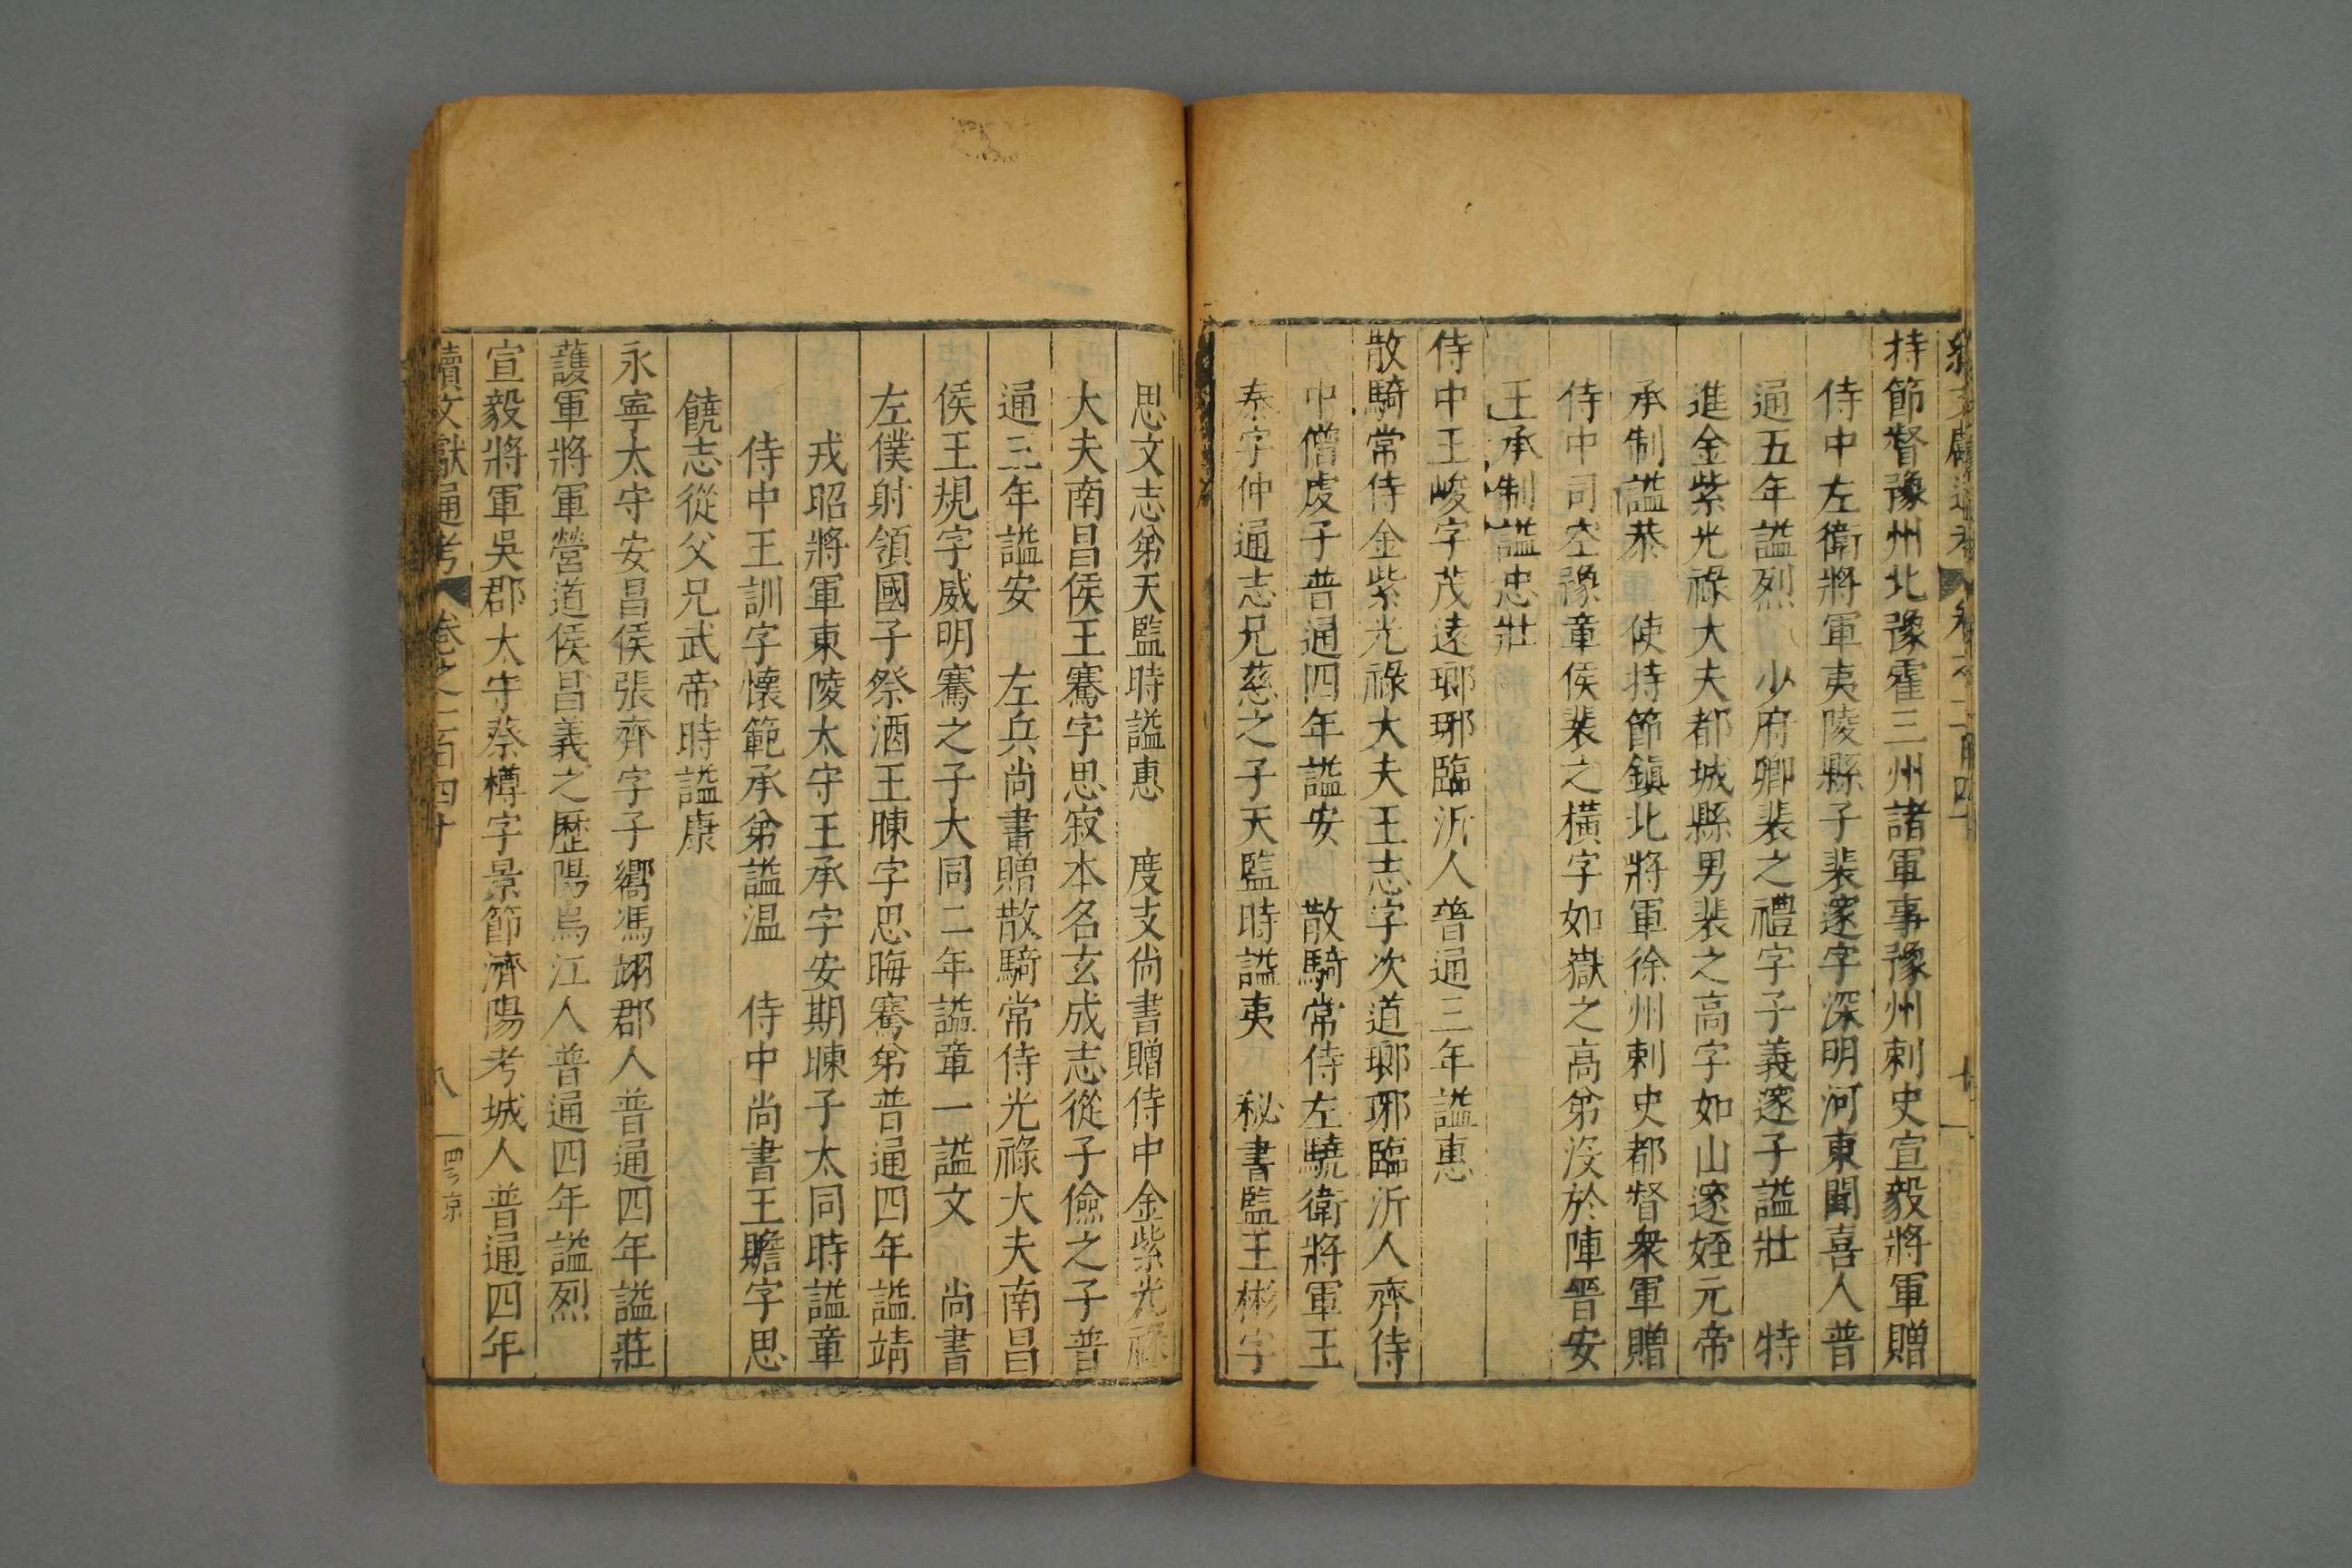 持節督豫州北豫霍三州諸軍事豫州刺史宣毅將軍贈
侍中左衛將軍夷陵縣子裴邃字深明河東聞喜人普
通五年謚烈 少府卿裴之禮字子義邃子謚壯 特
進金紫光祿大夫都城縣男裴之高字如山邃姪元帝
承制謚恭 使持節鎮北將軍徐州刺史都督衆軍贈
侍中司空豫章侯裴之橫字如嶽之高弟沒於陣晉安
王承制謚忠壯
侍中王峻字茂遠瑯琊臨沂人普通三年謚惠
散騎常侍金紫光祿大夫王志字次道瑯琊臨沂人齊侍
中僧虔子普通四年謚安 散騎常侍左驍衛將軍王
泰字仲通志兄慈之子天監時謚夷 秘書監王彬字
思文志弟天監時謚惠 度支尚書贈侍中金紫光祿
大夫南昌侯王騫字思寂本名玄成志從子儉之子普
通三年謚安 左兵尚書贈散騎常侍光祿大夫南昌
侯王規字威明騫之子大同二年謚章一謚文 尚書
左僕射領國子祭酒王暕字思晦騫弟普通四年謚靖
戎昭將軍東陵太守王承字安期暕子太同時謚章
侍中王訓字懷範承弟謚温 侍中尚書王瞻字思
饒志從父兄武帝時謚康
永寧太守安昌侯張齊字子嚮馮翊郡人普通四年謚莊
護軍將軍營道侯昌義之歷陽烏江人普通四年謚烈
宣毅將軍吳郡太守蔡樽字景節濟陽考城人普通四年
續文獻通考 卷之一百四十